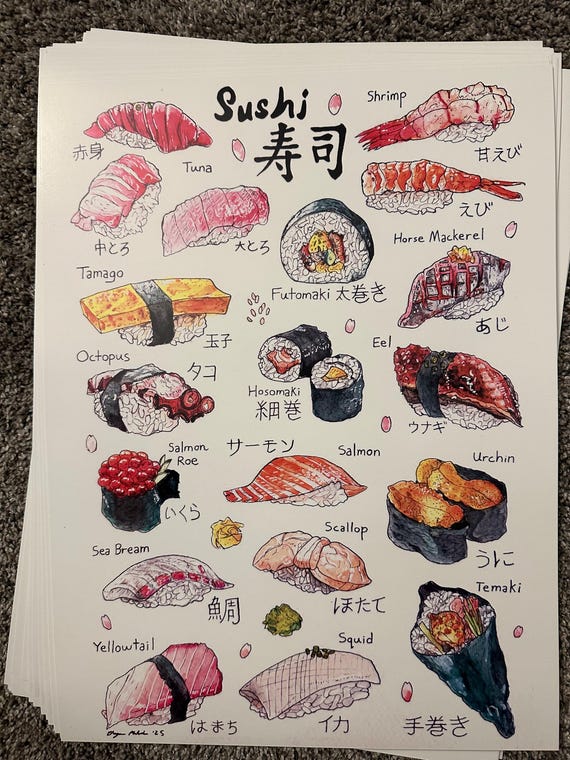 Sushi
寿司
Shrimp
甘えび
赤身
Tuna
中とろ
大とろ
えび
Horse Mackerel
あじ
Futomaki 太巻き
Tamago
玉子
Octopus
タコ
Hosomaki
細巻
Eel
ウナギ
Salmon
Roe
いくら
サーモン
Salmon
Urchin
うに
Sea Bream
鯛
Scallop
ほたて
Temaki
手巻き
Yellowtail
はまち
Squid
イカ
'25